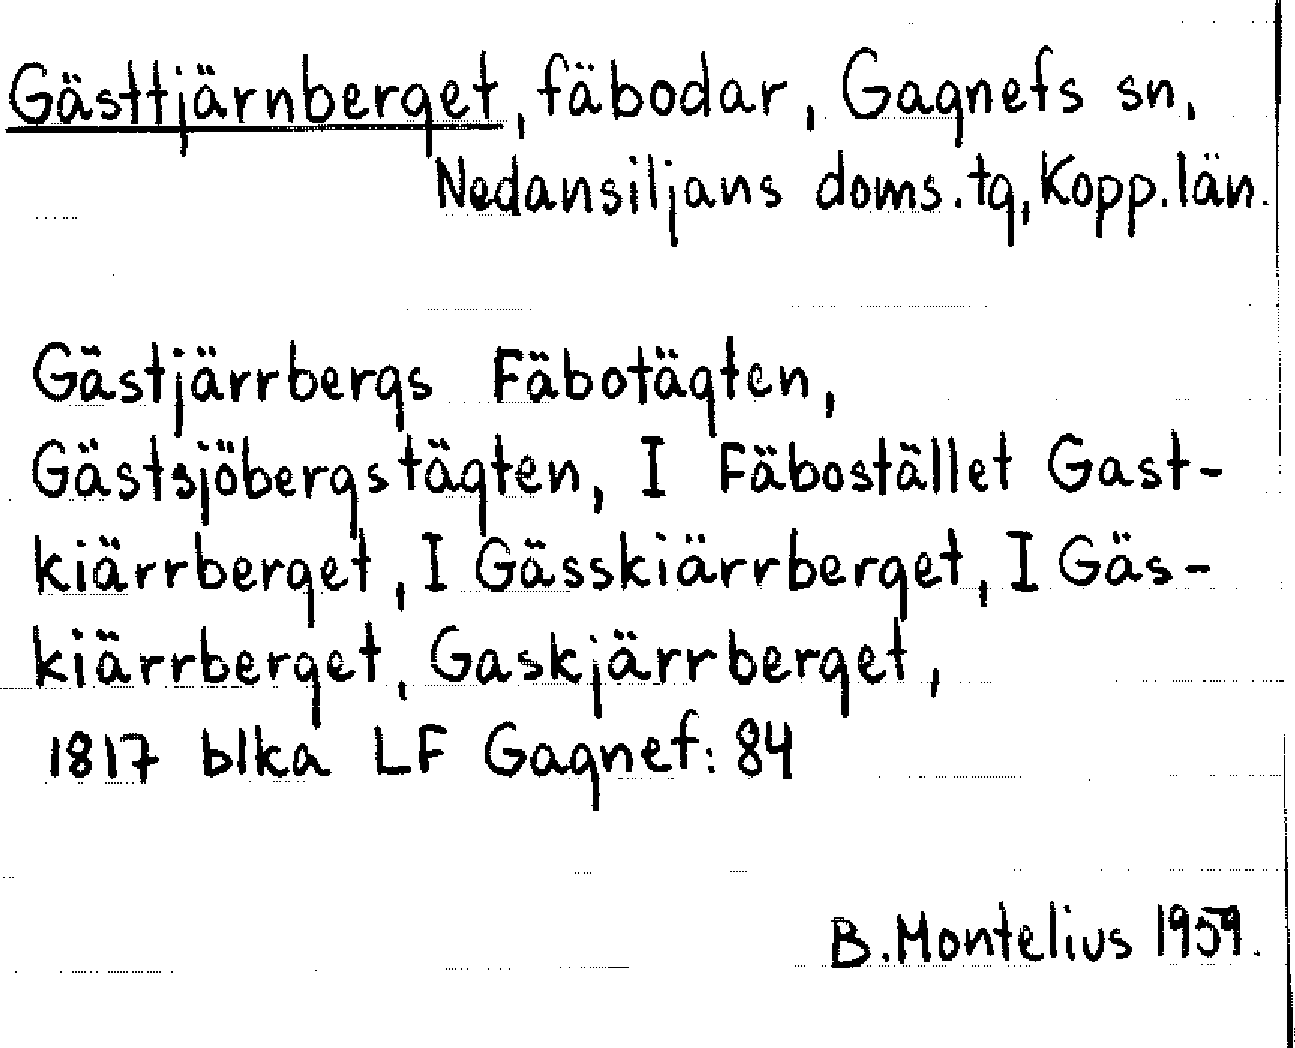 Gästtjärnberget, fäbodar, Gagnefs sn,
Nedansiljans doms.tg, Kopp.län.
Gästjärrbergs Fäbotägten,
Gästsjöbergstägten, I Fäbostället Gast-
kiärrberget, I Gässkiärrberget, I Gäs-
kiärrberget, Gaskjärrberget,
1817 blka LF Gagnef: 84
B. Montelius 1959.